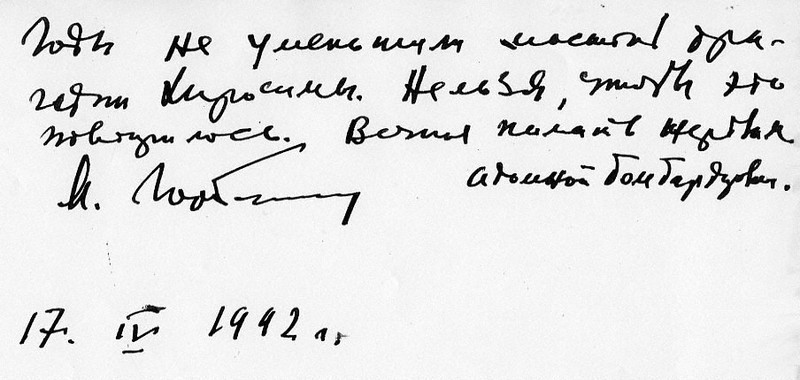 Годы не уменьшили масштаб тра-
гедии Хиросимы. Нельзя, чтобы это
повторилось. Вечная память жертвам
атомной бомбардировки.
М. Горбачев
17. IV 1992 г.